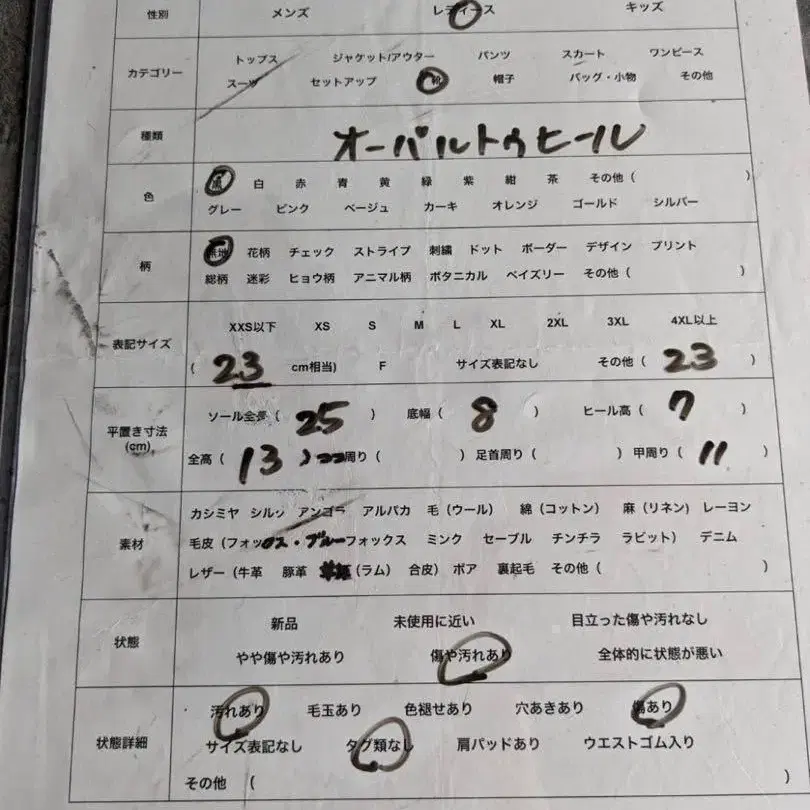 性別 メンズ レディース キッズ
カテゴリー
トップス ジャケット/アウター パンツ スカート ワンピース
スーツ セットアップ 靴 帽子 バッグ・小物 その他
種類 オーパルトゥヒール
色
黒 白 赤 青 黄 緑 紫 紺 茶 その他 ( )
グレー ピンク ベージュ カーキ オレンジ ゴールド シルバー
柄
無地 花柄 チェック ストライプ 刺繍 ドット ボーダー デザイン プリント
総柄 迷彩 ヒョウ柄 アニマル柄 ボタニカル ペイズリー その他 ( )
表記サイズ
XXS以下 XS S M L XL 2XL 3XL 4XL以上
( 23 cm相当) F サイズ表記なし その他 ( 23 )
平置き寸法
(cm)
ソール全長 ( 25 ) 底幅 ( 8 ) ヒール高 ( 7 )
全高 ( 13 ) 周り ( ) 足首周り ( ) 甲周り ( 11 )
素材
カシミヤ シルク アンゴラ アルパカ 毛 (ウール) 綿 (コットン) 麻 (リネン) レーヨン
毛皮 (フォックス・ブルーフォックス ミンク セーブル チンチラ ラビット) デニム
レザー (牛革 豚革 (ラム) 合皮) ボア 裏起毛 その他 ( )
状態
新品 未使用に近い 目立った傷や汚れなし
やや傷や汚れあり 傷や汚れあり 全体的に状態が悪い
状態詳細
汚れあり 毛玉あり 色褪せあり 穴あきあり 傷あり
サイズ表記なし タグ類なし 肩パッドあり ウエストゴム入り
その他 ( )